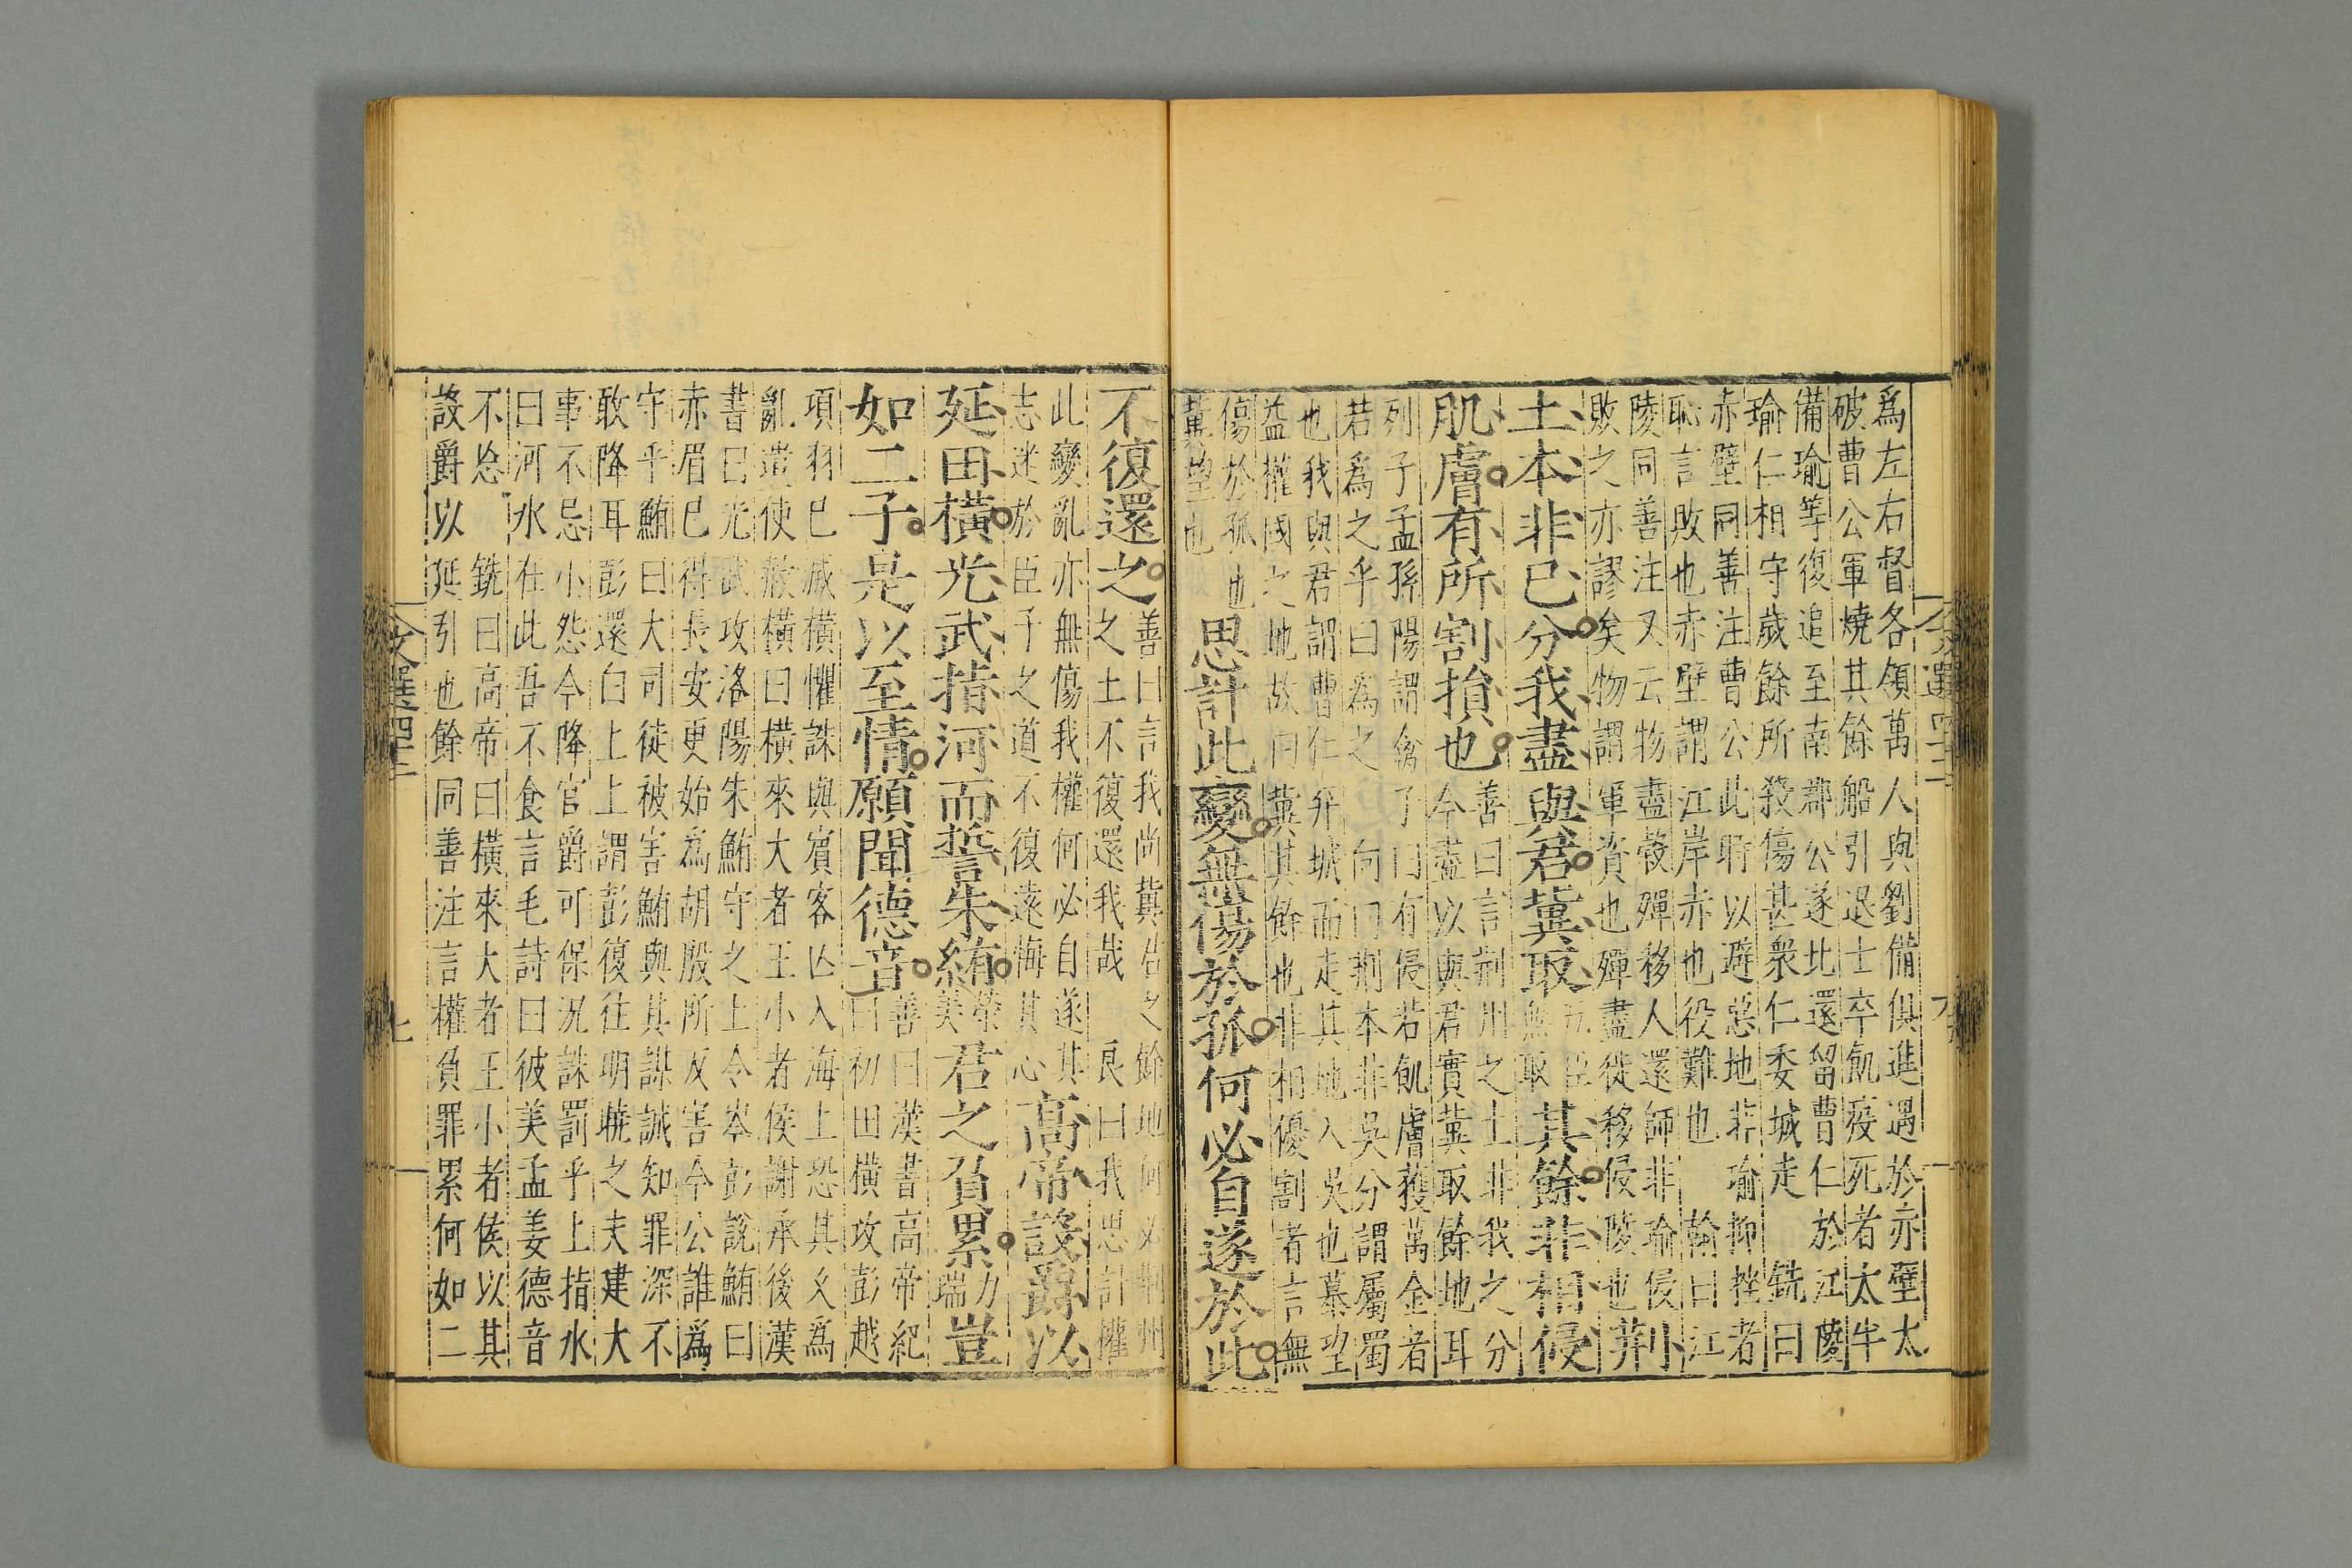 爲左右督各領萬人與劉備俱進遇於赤壁太
破曹公軍燒其餘船引退士卒飢疫死者太半
備瑜等復追至南郡公遂北還留曹仁於江陵
瑜仁相守歲餘所殺傷甚衆仁委城走 銑曰
赤壁同善注曹公此時以避惡地非瑜抑挫者
恥言敗也赤壁謂江岸赤也役難也 翰曰江
陵同善注又云物盡穀殫移人還師非瑜侵荆
敗之亦謬矣物謂軍資也殫盡徙移侵陵也
土本非已分我盡與君冀取
五臣
無取
其餘非相侵
肌膚有所割損也
善曰言荆州之土非我之分
今盡以與君實冀取餘地耳
列子孟孫陽謂禽子曰有侵若飢膚獲萬金者
若爲之乎曰爲之 向曰荆本非吳分謂屬蜀
也我與君謂曹仁弃城而走其地入吳也慕望
益權國之地故向冀其餘也非相優割者言無
傷於孤也
冀望也
思計此變無傷於孤何必自遂於此
不復還之
善曰言我尚冀君之餘地何必荆州
之土不復還我哉 良曰我思計權
此變亂亦無傷我權何必自遂其
志迷於臣子之道不復遠悔其心
高帝設爵以
延田橫光武指河而誓朱鮪
榮
美
君之負累
力
瑞
豈
如二子是以至情願聞德音
善曰漢書高帝紀
曰初田橫攻彭越
項羽已滅橫懼誅與賓客亾入海上恐其乆爲
亂遣使赦橫曰橫來大者王小者侯謝承後漢
書曰光武攻洛陽朱鮪守之上令岑彭說鮪曰
赤眉已得長安更始爲胡殷所反害今公誰爲
守乎鮪曰大司徒被害鮪與其謀誠知罪深不
敢降耳彭還白上上謂彭復往明曉之夫建大
事不忌小怨今降官爵可保況誅罰乎上指水
曰河水在此吾不食言毛詩曰彼美孟姜德音
不忘 銑曰高帝曰橫來大者王小者侯以其
設爵以延引也餘同善注言權負罪累何如二
文選四十二
七